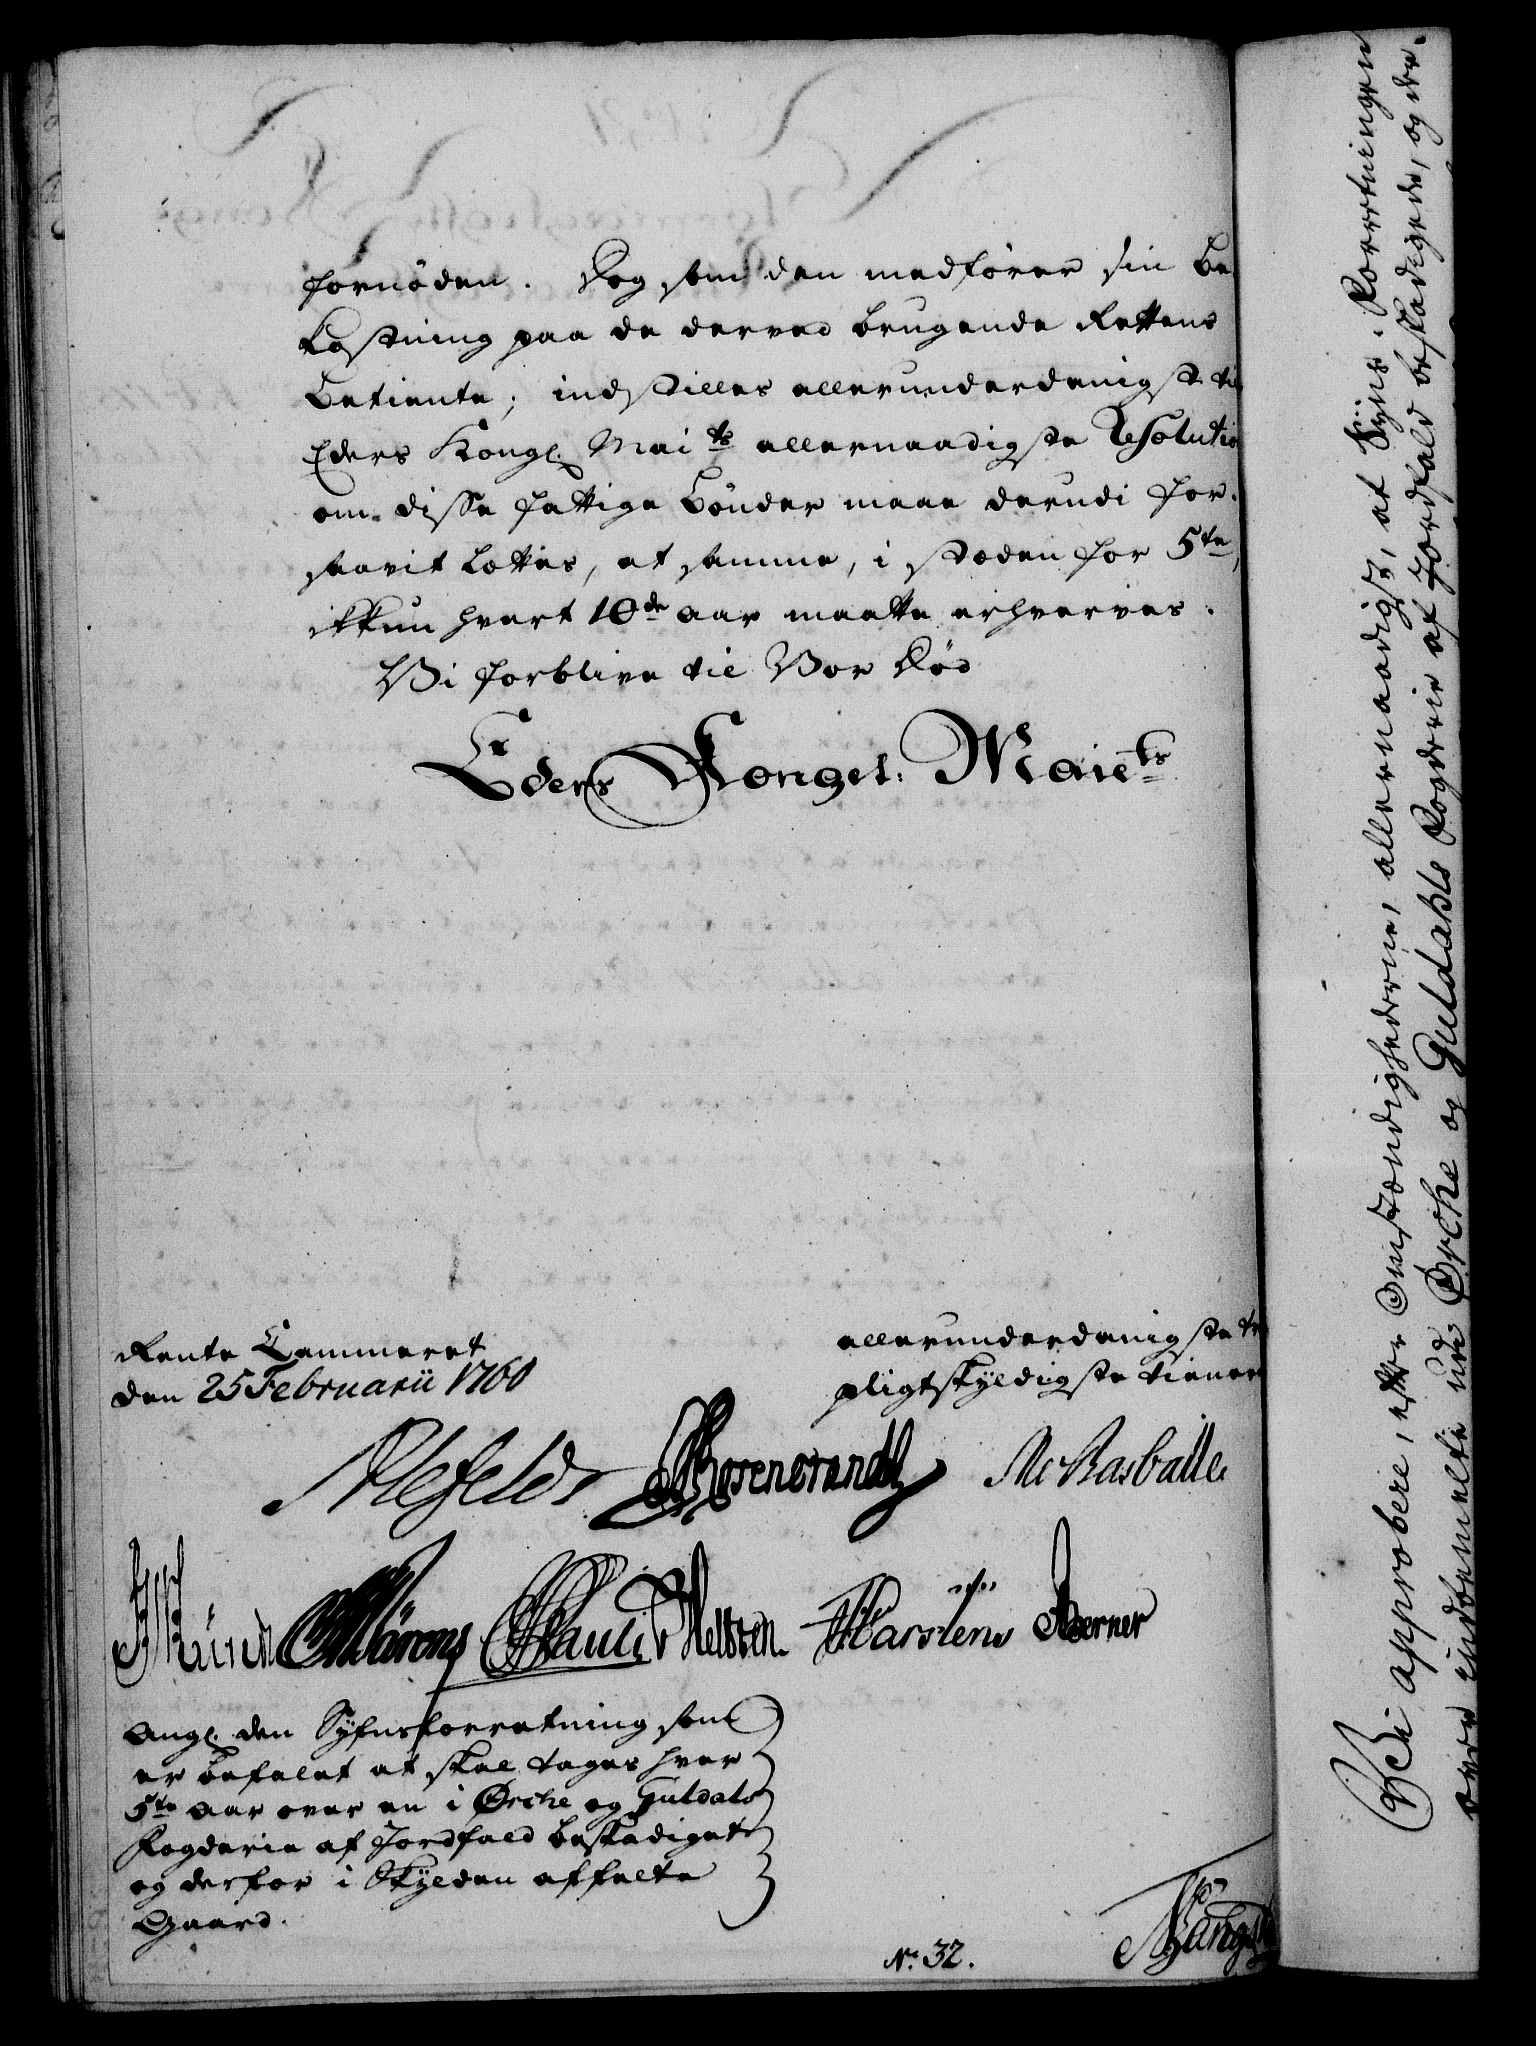 fornöden. Dog som den medförer sin Be
kostning paa de derved brugende Rettens
Betiente; indstilles allerunderdanigst til
Eders Kongl. Mai ts allernaadigste Resolutio
om disse fattige Bönder maae derudi for-
saavit lettes, at samme, i stæden for 5te,
ikkun hvert 10de aar maatte erhverves.
Vi forblive til Vor Död
Eders Kongel: Maiets
Rente Cammeret
den 25 Februarii 1760
allerunderdanigste
pligtskyldigste tienere
Alefeldt
Rosenbrandt
Basballe
Mörons Pauli Helsen. Karstens Berner
Angl. den Sÿfnsforretning som
er befalet at skal tages hver
5te Aar over en i Ørche og Guldals
Fogderie af Jordfald beskadiget
og derfor i Skÿlden affelte
Gaard.
No. 32.
Vi approbere, efter Omstændighederne, allernaadigst, at Siins-Forretningen
over indbemelte udi Ørche og Guldahls Fogderie af Jordfald beskadigede, og der-